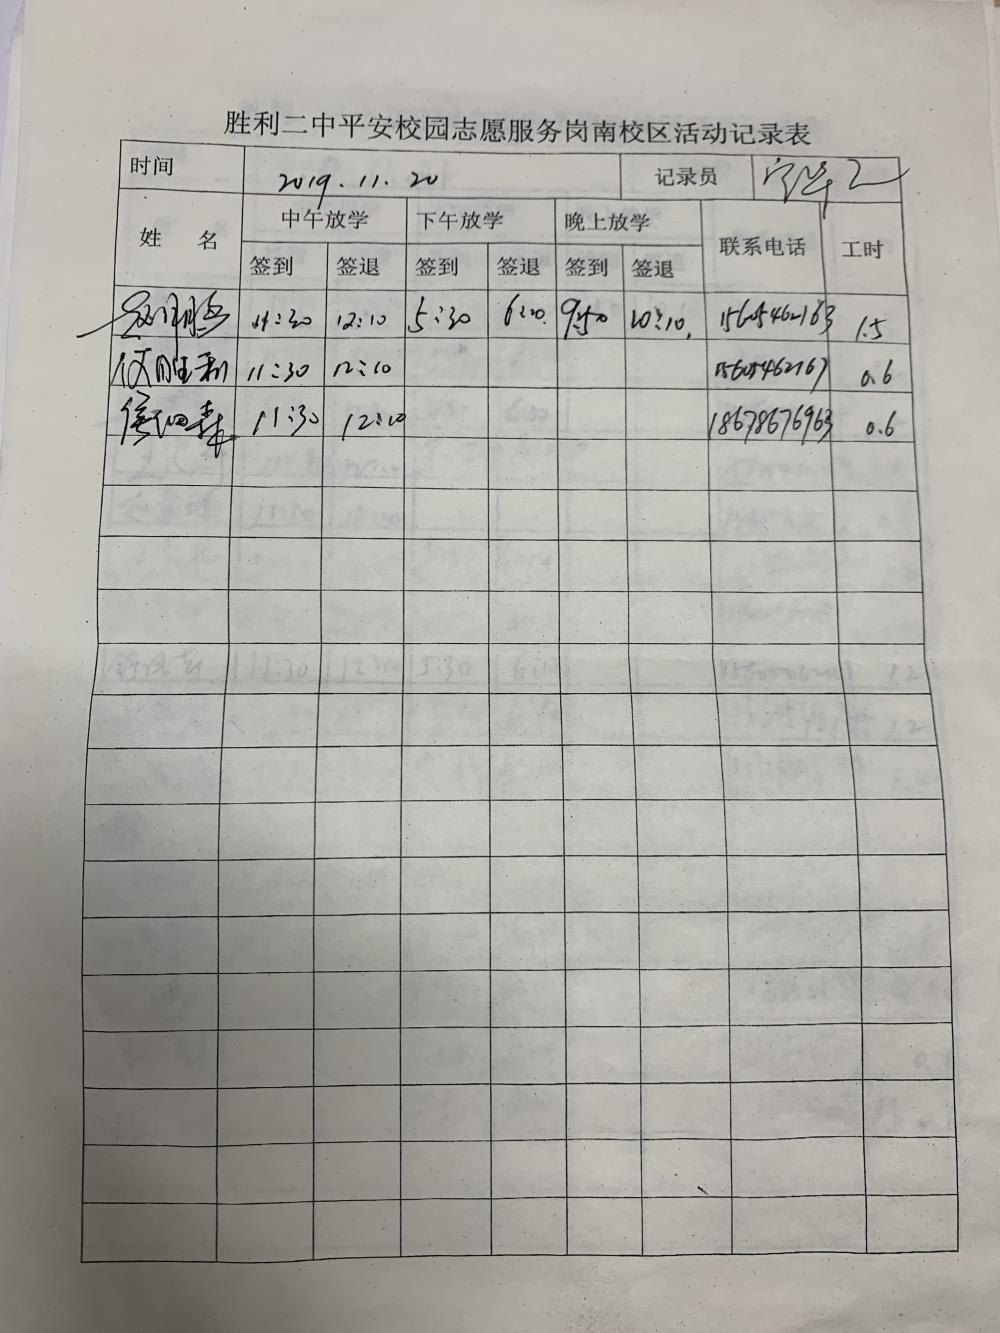 胜利二中平安校园志愿服务岗南校区活动记录表
时间 2019.11.20 记录员
姓 名 中午放学 下午放学 晚上放学 联系电话 工时
签到 签退 签到 签退 签到 签退
11:30 12:10 5:30 6:10 9:50 10:10 15605462163 1.5
何胜利 11:30 12:10 15605462167 0.6
11:30 12:10 18678676963 0.6